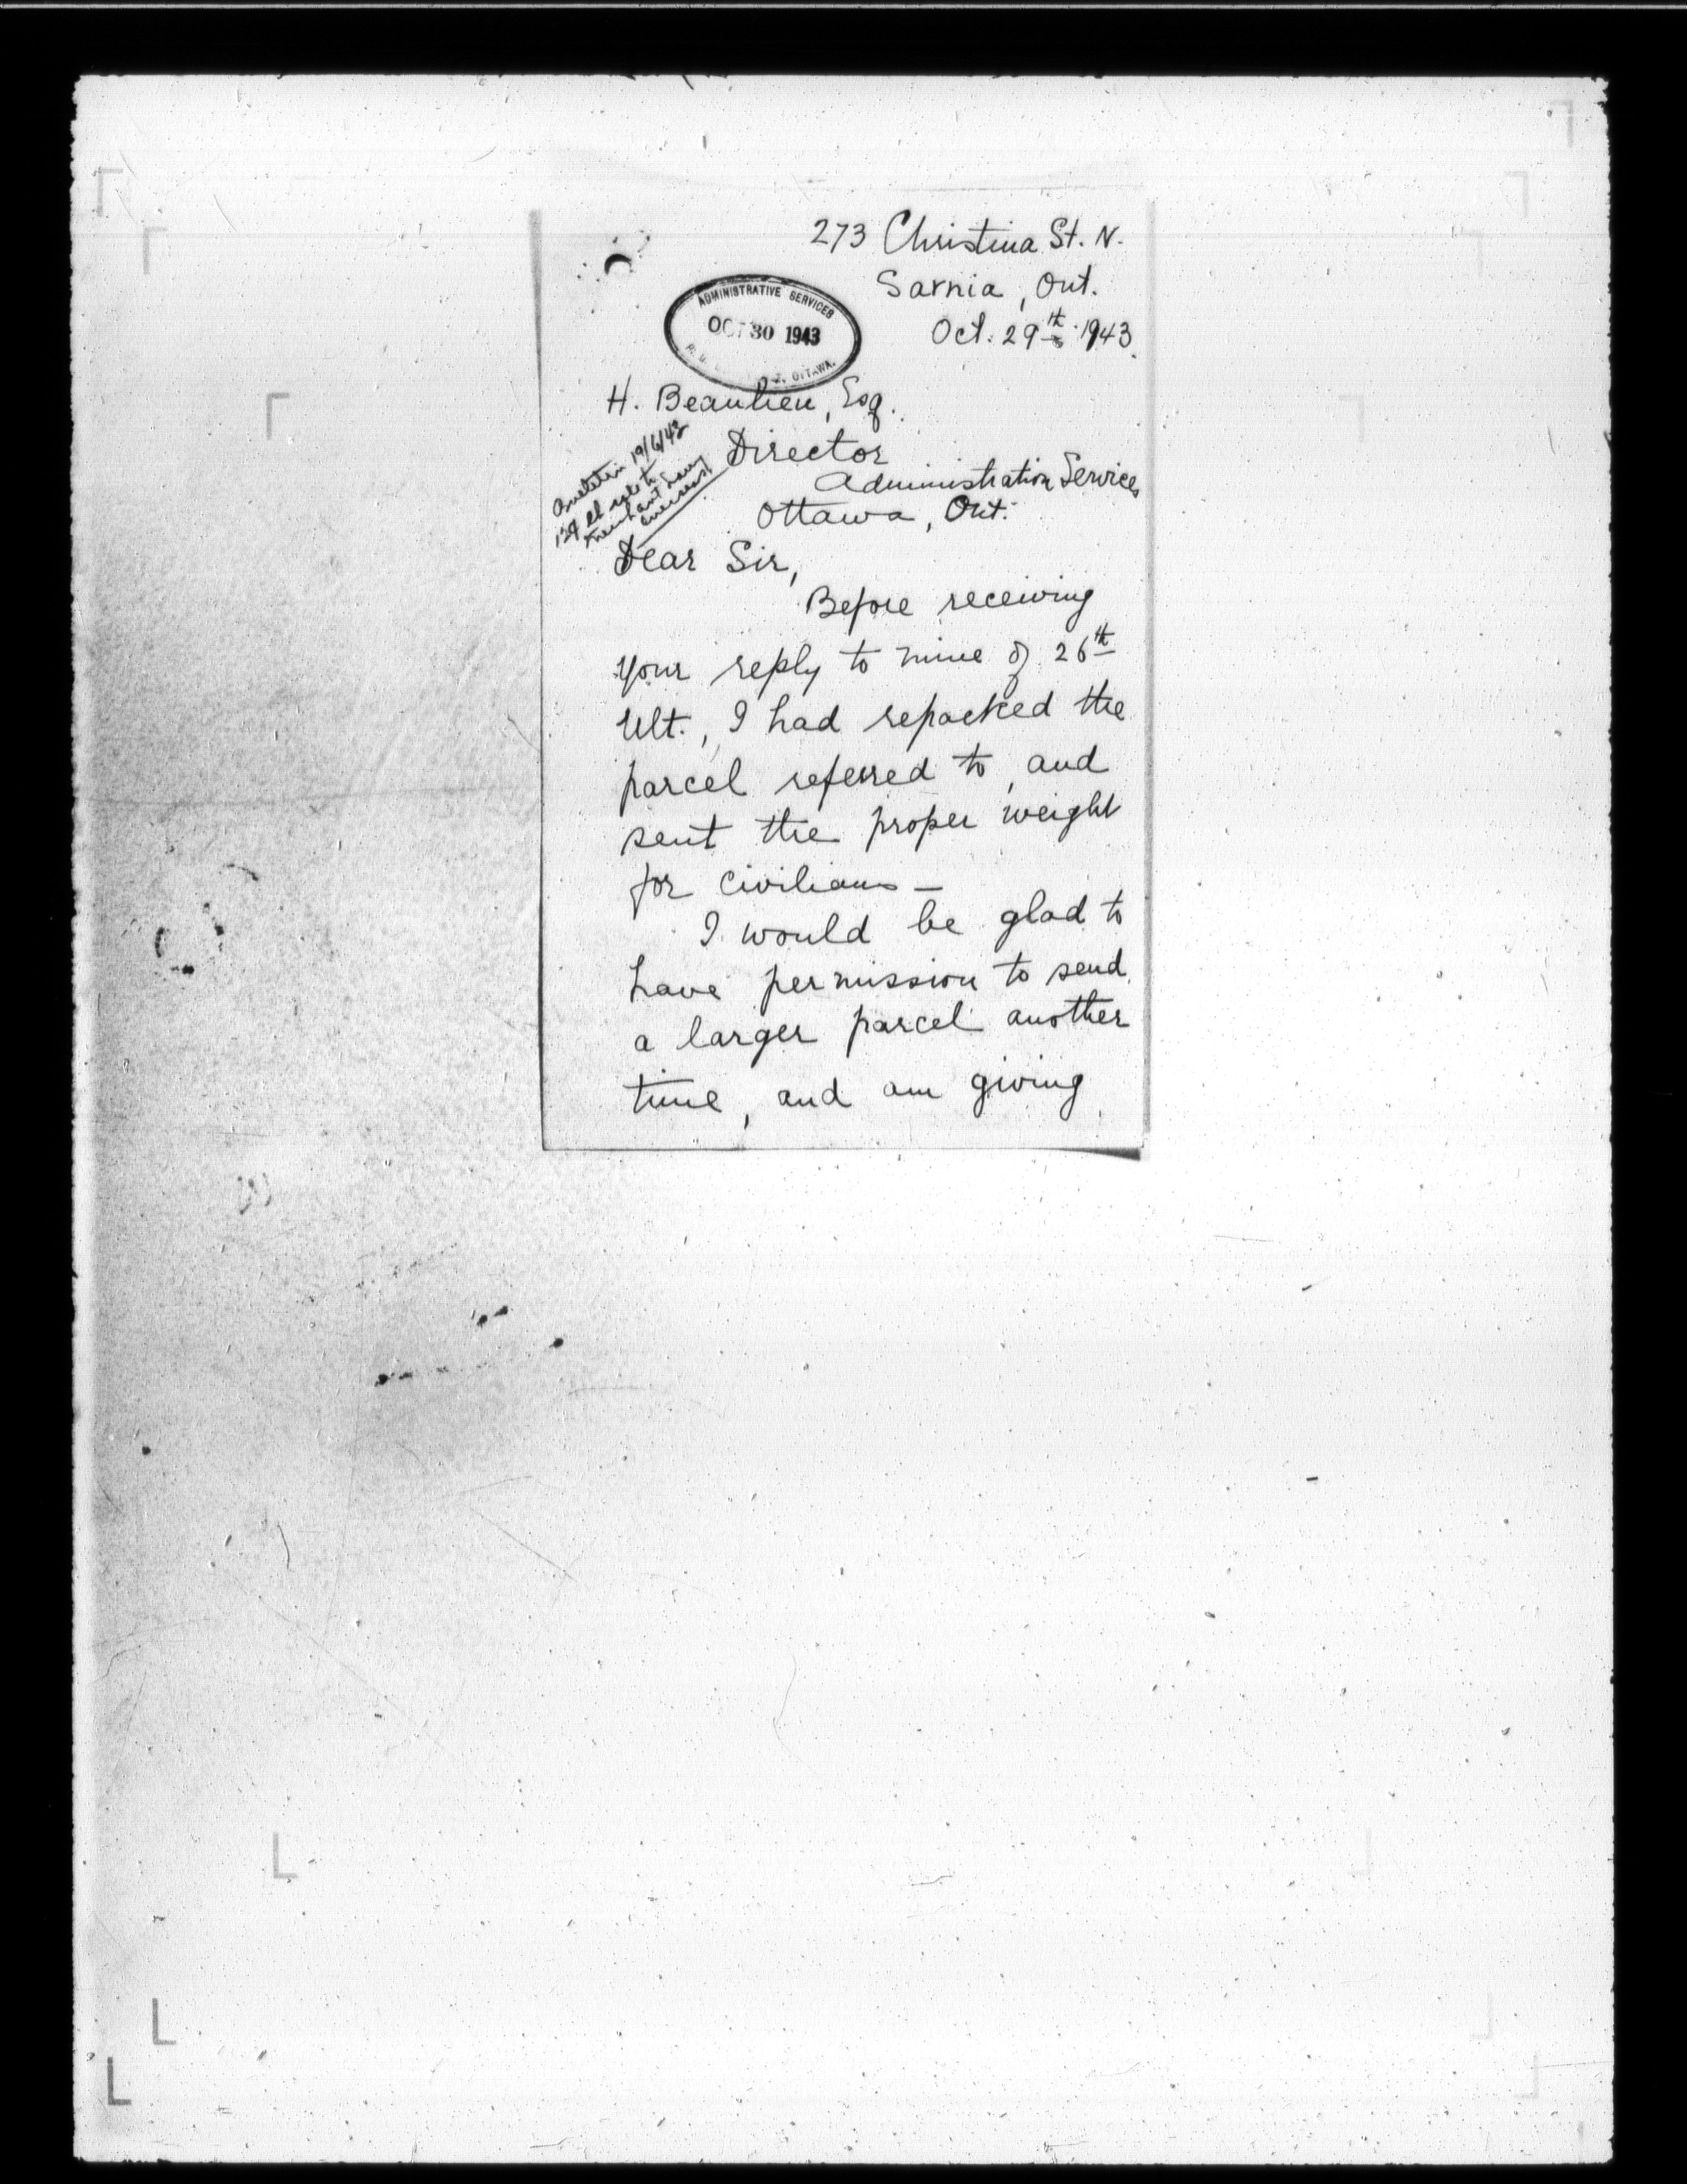 273 Christina St. N.
Sarnia, Ont.
Oct. 29th 1943.
ADMINISTRATIVE SERVICES
OCT 30 1943
OTTAWA.
H. Beaulieu, Esq.
Director
Administration Services
Ottawa, Ont.
19/6/43
rate to
merchant navy
overseas
Dear Sir,
Before receiving
your reply to mine of 26th
Ult., I had repacked the
parcel referred to, and
sent the proper weight
for civilians —
I would be glad to
have permission to send
a larger parcel another
time, and am giving